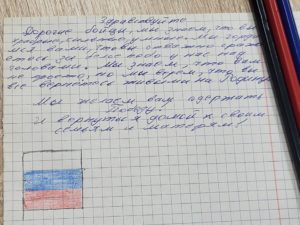 Здравствуйте
Дорогие бойцы, мы знаем, что вы
мы горди
мся вами, чтобы
за
головами. Мы знаем, что вам
не просто, но мы верим, что вы
все вернётесь живыми на Родину.
Мы желаем вам одержать
Победу!
И вернуться домой к своим
семьям и матерям!